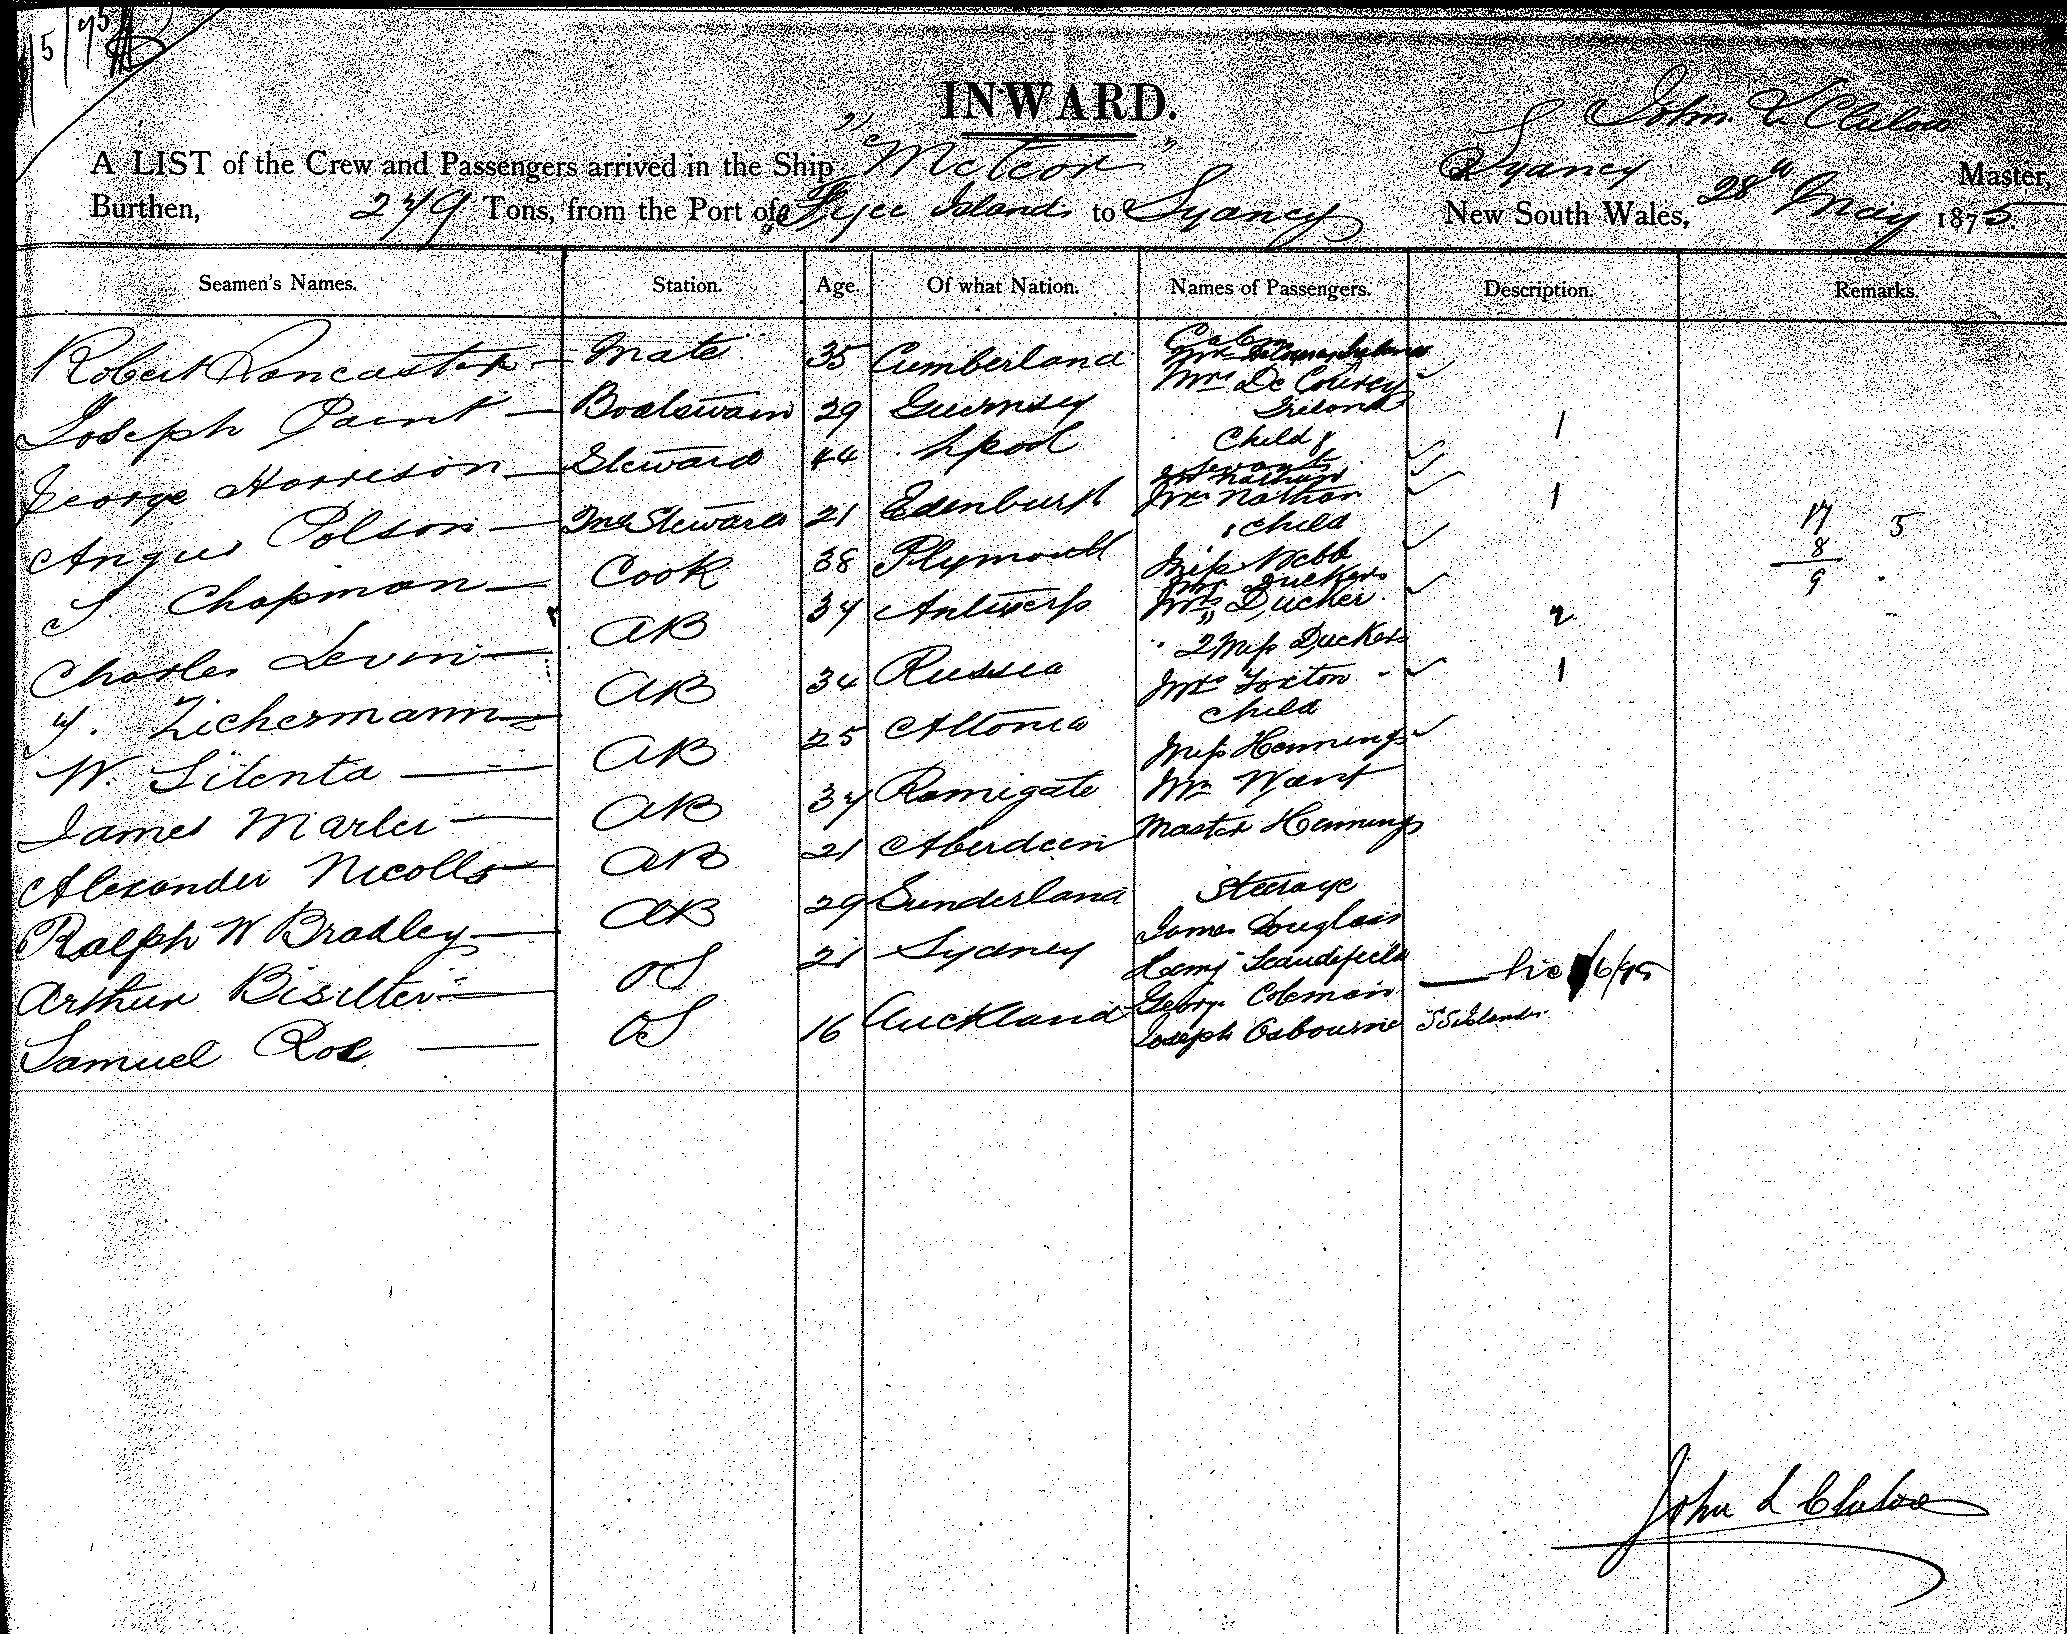 5/75
INWARD.
John. L. Clulow
A LIST of the Crew and Passengers arrived in the Ship "Meteor" Sydney Master,
Burthen, 249 Tons, from the Port of Fijee Islands to Sydney New South Wales, 28th May 1875.
Seamen's Names. Station. Age. Of what Nation. Names of Passengers. Description. Remarks.
Robert Loncaster — Mate 35 Cumberland
Joseph Paint — Boatswain 29 Guernsey
George Harrison — Steward 44 Lpool
Angus Polson — 2nd Steward 21 Edenburgh
S Chapman — Cook 38 Plymouth
Charles Levin — AB 34 Antwerp
Y. Zichermann — AB 34 Russia
W. Silenta — AB 25 Altonia
James Marler — AB 34 Ramsgate
Alexander Nicolls — AB 21 Aberdeen
Ralph W Bradley — AB 29 Sunderland
Arthur — OS 21 Sydney
Samuel Roe — OS 16 Auckland
Cabin
Mrs De Courcy
Ireland
Child &
Servant 1
Mr Nathan
Mrs Nathan
& child 1
Miss Webb
Mr Ducker
Mrs Ducker
" 2 Miss Duckers 2
Mrs Foxton
child 1
Miss Hennings
Mr Want
Master Hennings
Steerage
James Douglass
Henry
George Coleman
Joseph Osbourne S S Islander
17 5
8
9
John L Clulow